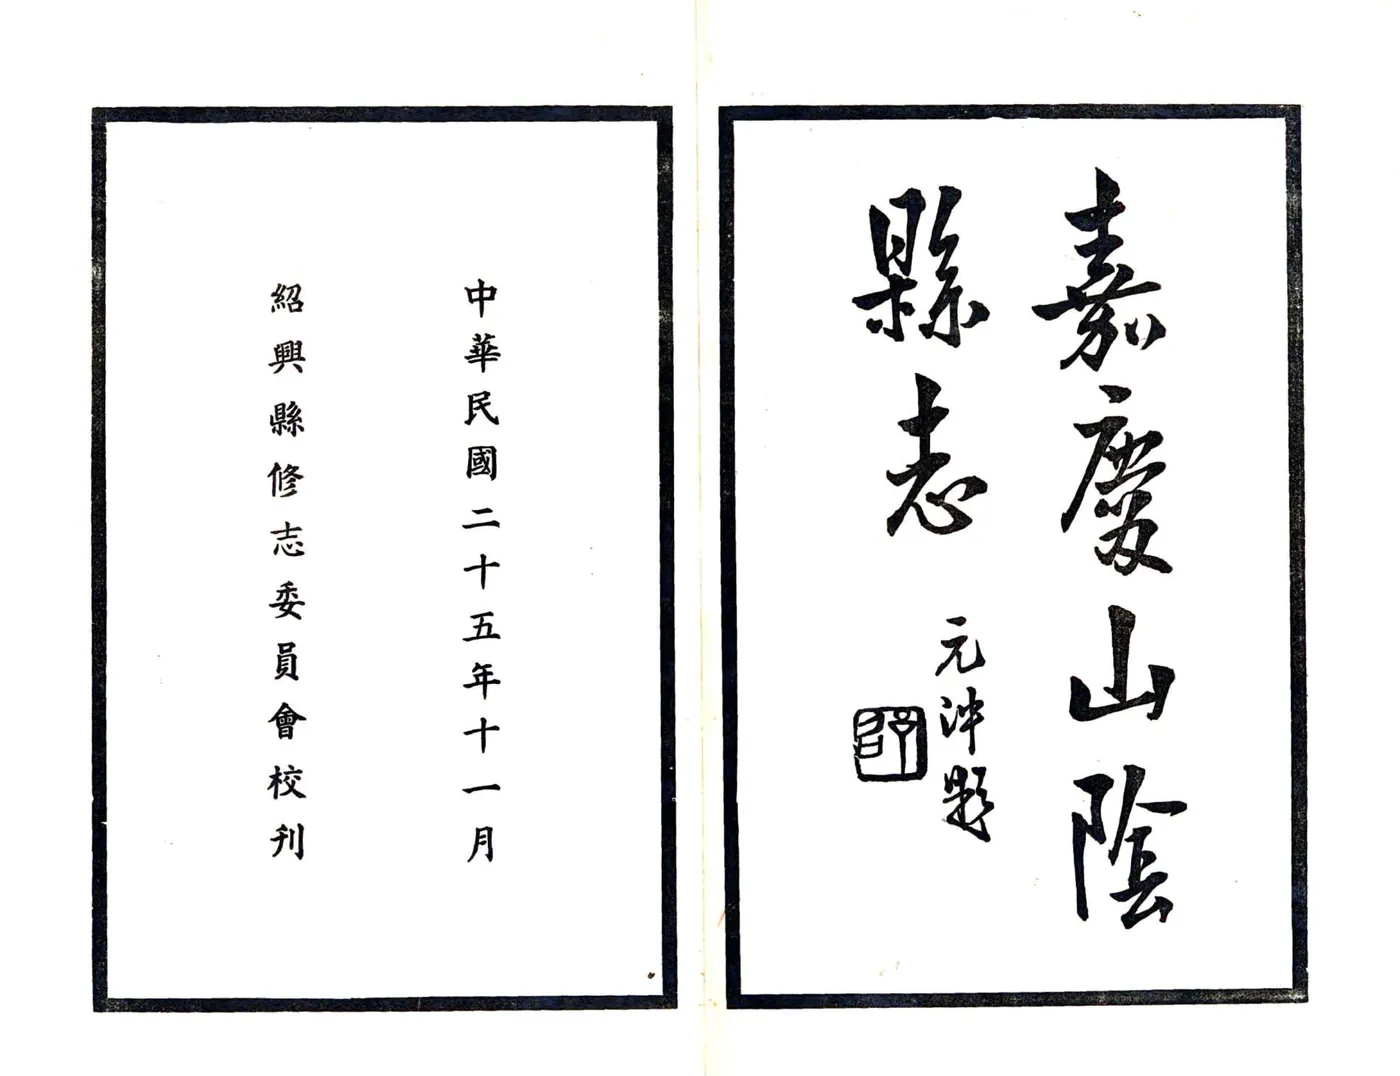 嘉慶山陰
縣志
元沖題
中華民國二十五年十一月
紹興縣修志委員會校刋